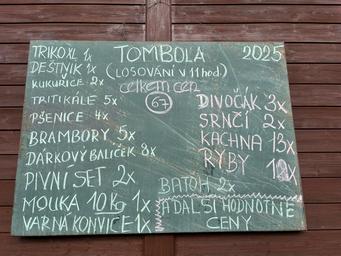 TOMBOLA 2025
(LOSOVÁNÍ V 11 hod.)
celkem cen
67
TRIKO XL 1x
DEŠTNÍK 1x
KUKUŘICE 2x
TRITIKÁLE 5x
PŠENICE 4x
BRAMBORY 5x
DÁRKOVÝ BALÍČEK 8x
PIVNÍ SET 2x
MOUKA 10 kg 1x
VARNÁ KONVICE 1x
DIVOČÁK 3x
SRNČÍ 2x
KACHNA 15x
RYBY
BATOH 2x
A DALŠÍ HODNOTNÉ
CENY